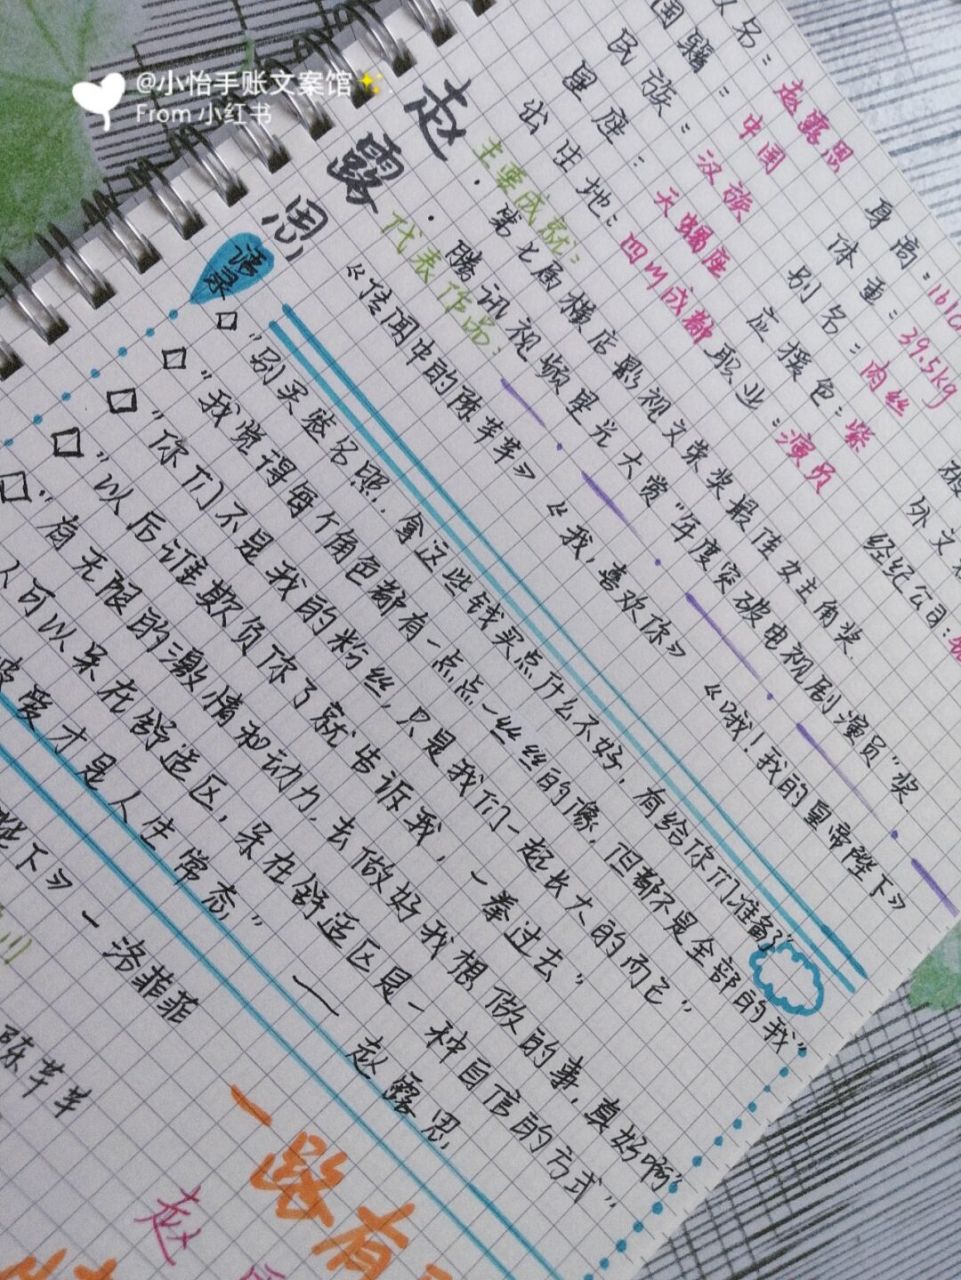 @小怡手账文案馆✨
From 小红书
赵露思
赵露思 身高:161c
国籍:中国 体重:39.5kg
民族:汉族 别名:肉丝
星座:天蝎座 应援色:紫
出生地:四川成都 职业:演员
外文
经纪公司:
主要成就:
·第七届横店影视文荣奖最佳女主角奖
·腾讯视频星光大赏"年度突破电视剧演员"奖
代表作品:
《传闻中的陈芊芊》《我,喜欢你》《哦!我的皇帝陛下》
语录
□"别买签名照,拿这些钱买点什么不好,有给你们准备"
□"我觉得每个角色都有一点点一丝丝的像,但都不是全部的我"
□"你们不是我的粉丝,只是我们一起长大的而已"
□"以后谁欺负你了就告诉我,一拳过去"
□"有无限的激情和动力,去做好我想做的事,真好啊"
人可以呆在舒适区,呆在舒适区是一种自信的方式"
爱才是人生常态" ——赵露思
陛下》—洛菲菲
陈芊芊
一路有
赵